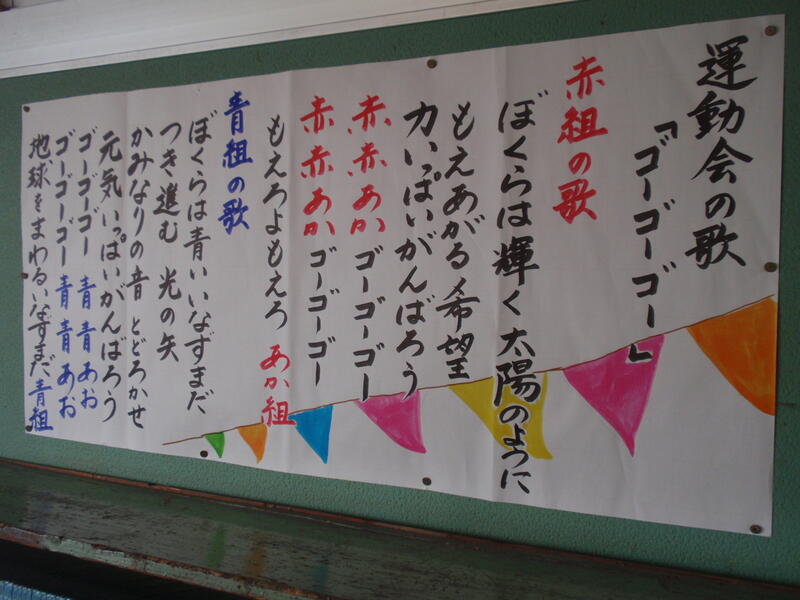 運動会の歌
「ゴーゴーゴー」
赤組の歌
ぼくらは輝く太陽のように
もえあがる希望
力いっぱいがんばろう
赤赤あか ゴーゴーゴー
赤赤あか ゴーゴーゴー
もえろよもえろ あか組
青組の歌
ぼくらは青いいなずまだ
つき進む 光の矢
かみなりの音 とどろかせ
元気いっぱいがんばろう
ゴーゴーゴー 青青あお
ゴーゴーゴー 青青あお
地球をまわるいなずまだ 青組